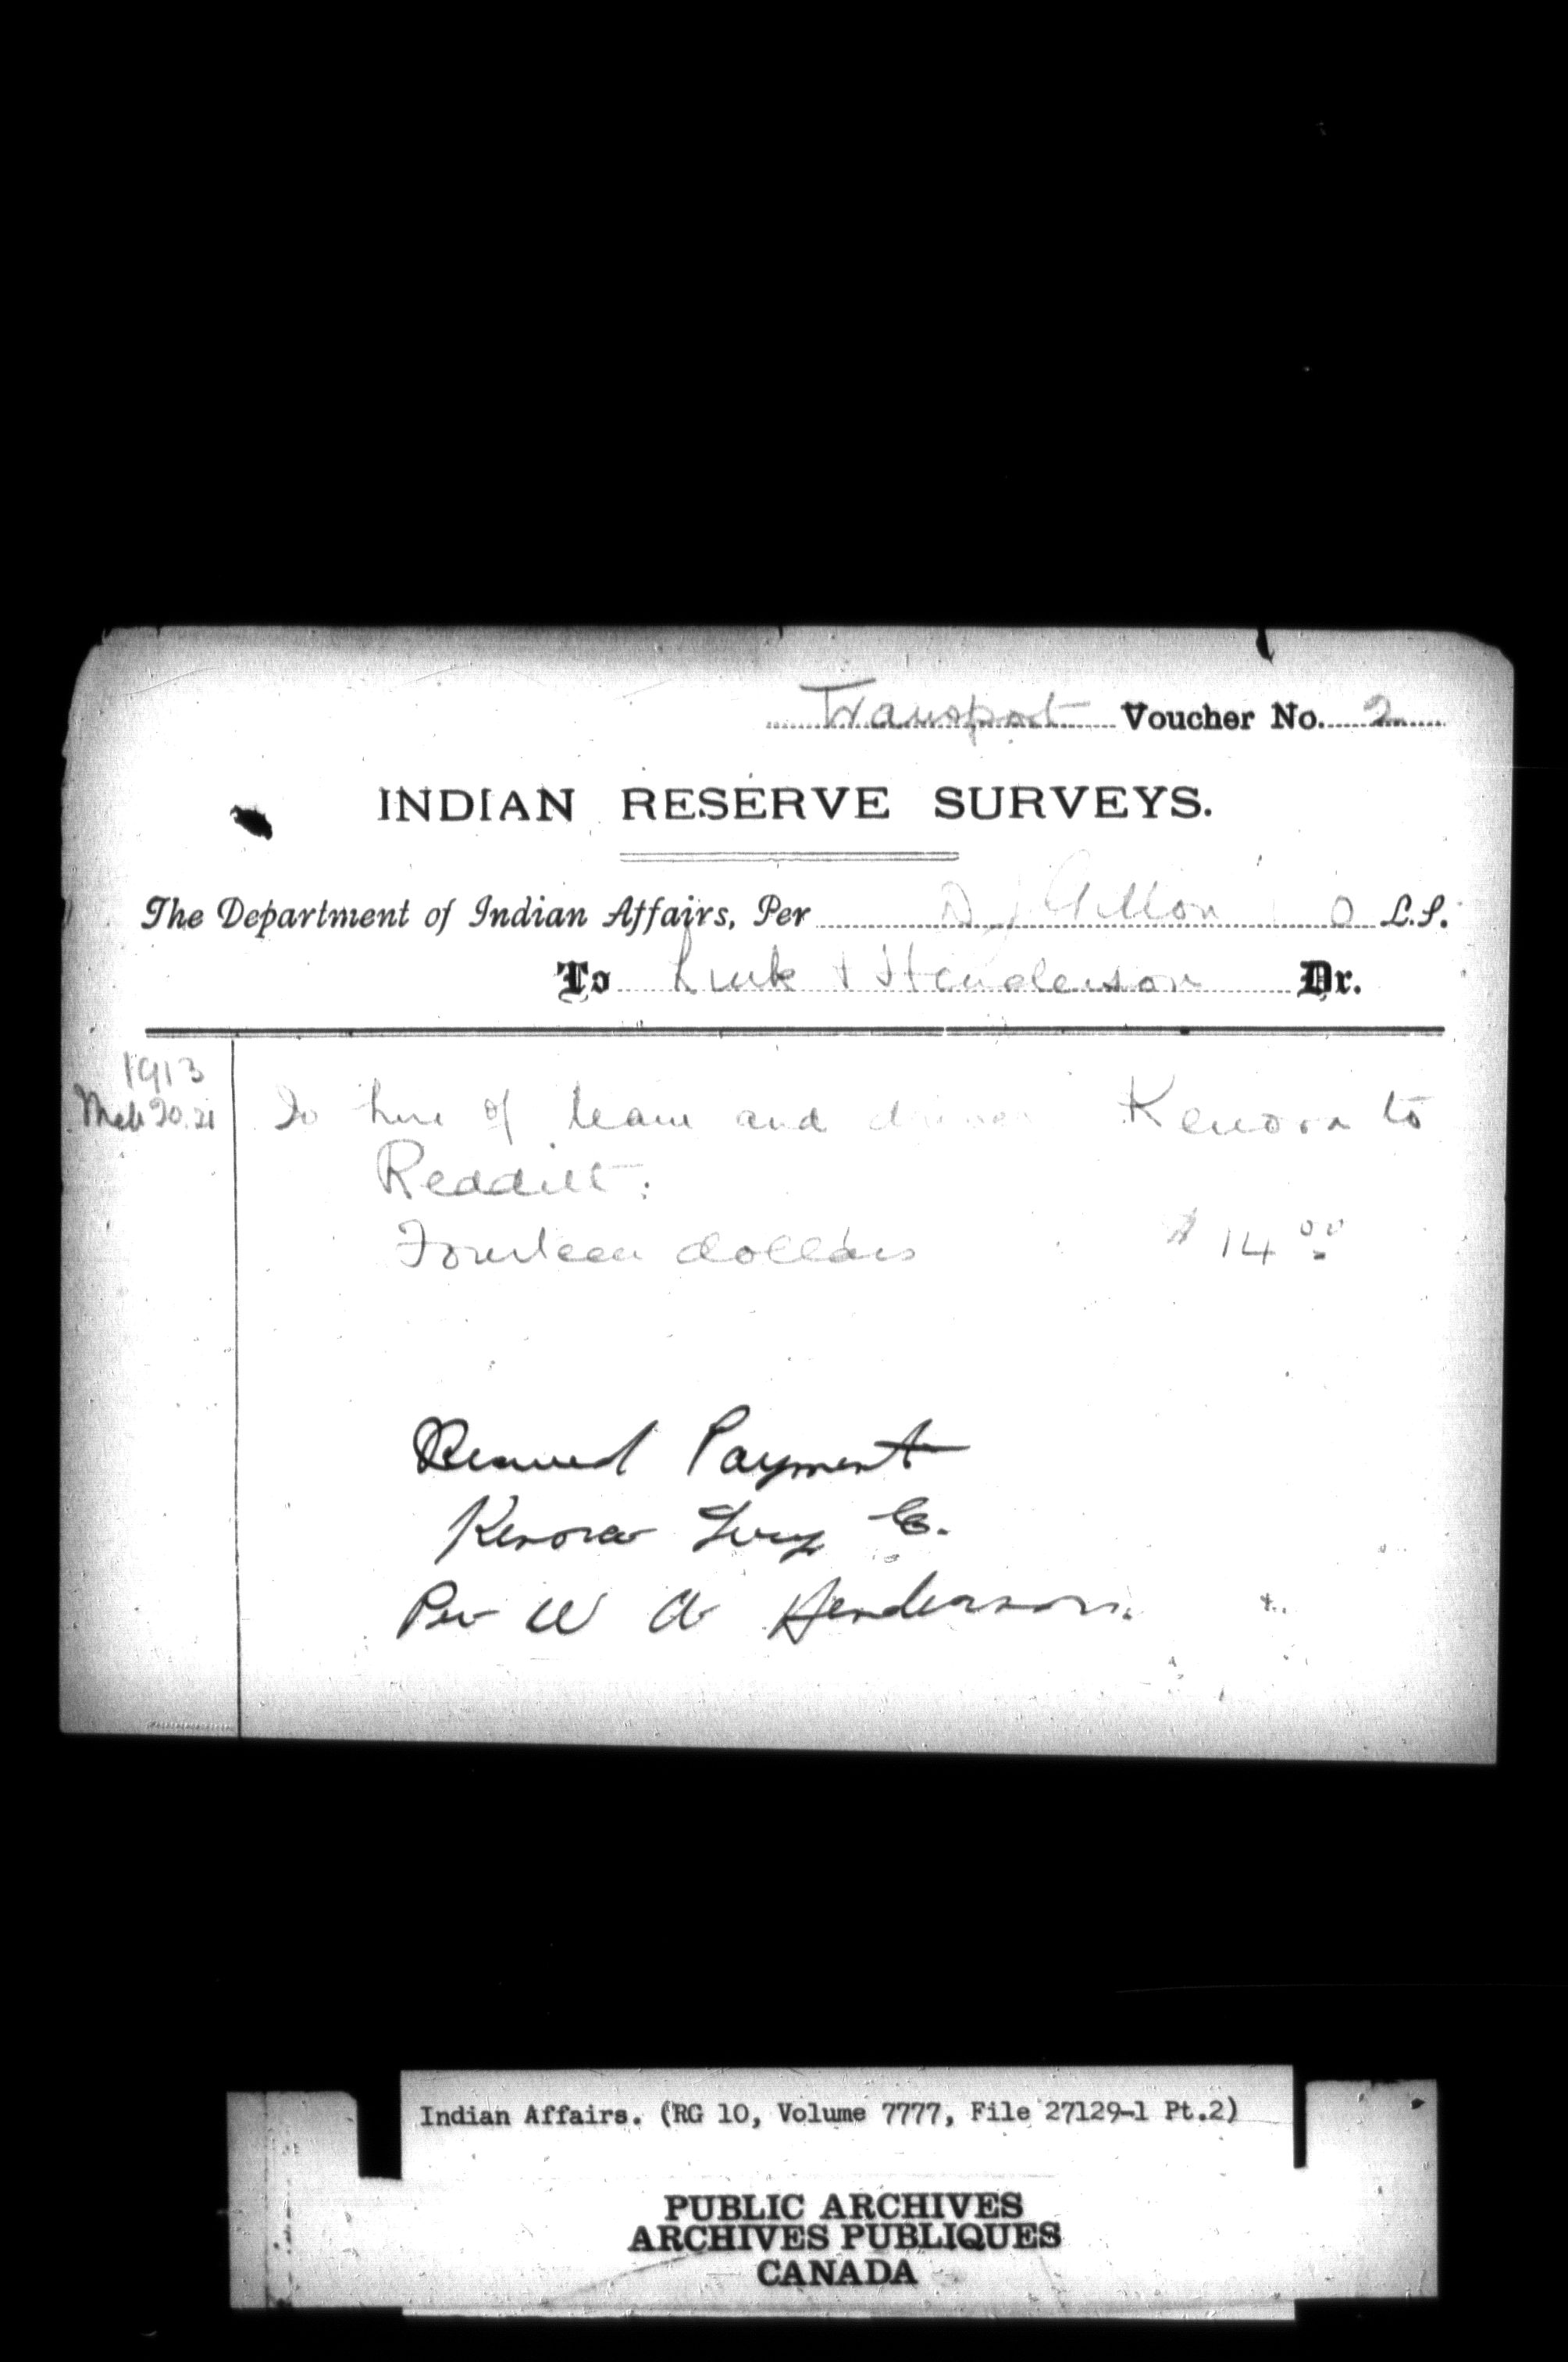 Transport Voucher No. 2
INDIAN RESERVE SURVEYS.
The Department of Indian Affairs, Per D. J. Gillon O L.S.
To Link & Henderson Dr.
1913
Mch 20.21 To hire of team and driver Kenora to
Redditt:
Fourteen dollars $14.00
Received Payment
Kenora Livy Co.
Per W A Henderson.
Indian Affairs. (RG 10, Volume 7777, File 27129-1 Pt.2)
PUBLIC ARCHIVES
ARCHIVES PUBLIQUES
CANADA